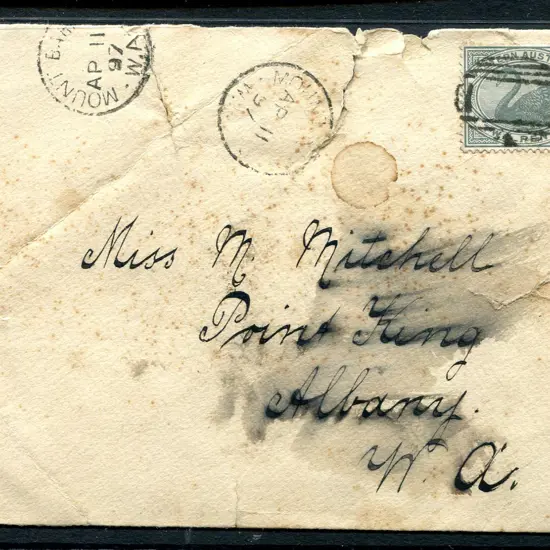 MOUNT
AP 11
97
W.A
MOU
AP 11
97
Miss M. Mitchell
Point King
Albany.
W. A.